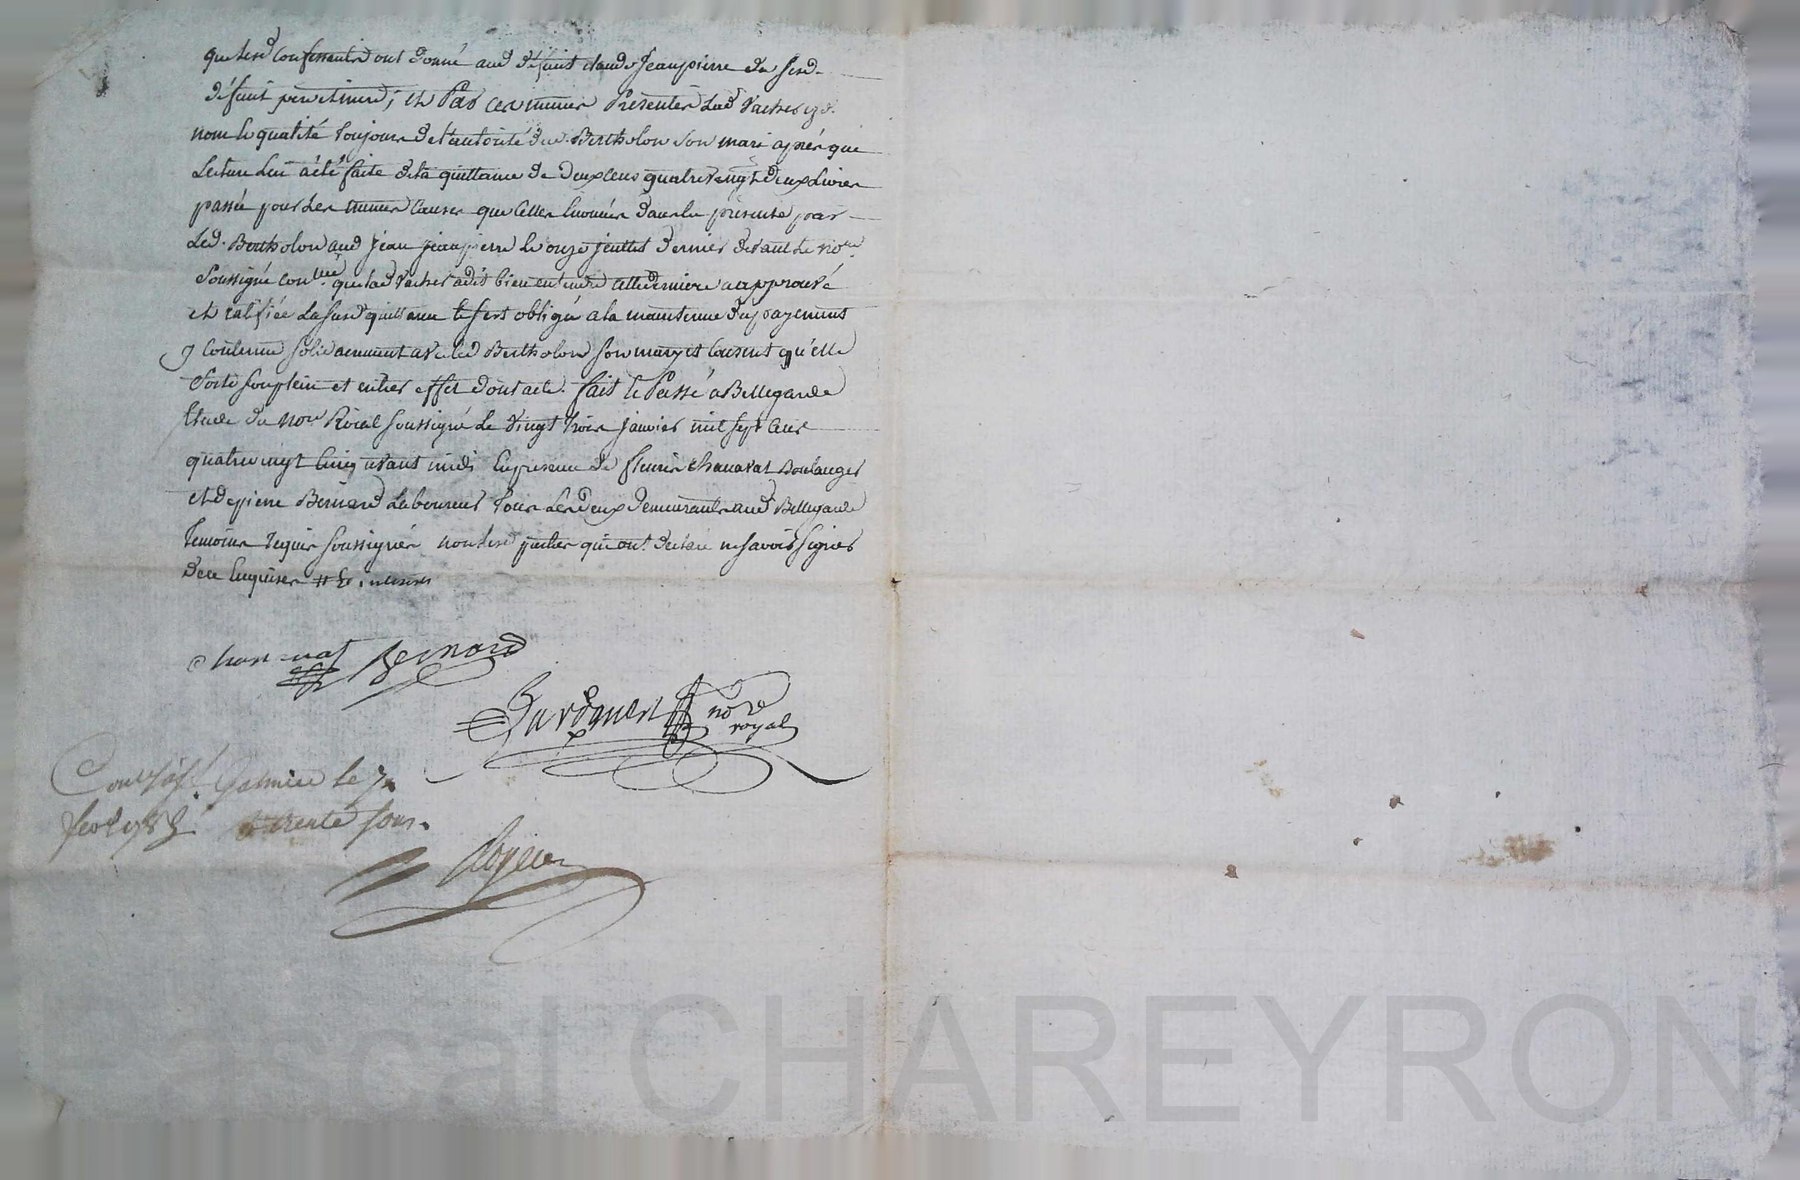 que lesd confessants ont donné aud défunt claude Jeanpierre du susd
défunt pere et mere; et Par ces memes Presentes Lad Vacher
nom & qualité toujours de l'autorité dud. Bertholon son mari après que
Lecture Lui a été faite de la quittance de Deux cens quatrevingt Deux Livres
passée pour Les memes Causes que Celles Enoncées Dans la presente par
Led. Bertholon aud Jean Jeanpierre le onze Juillet Dernier devant le nore
Soussigné que lad Vacher a dit bien entendre cette derniere a approuvé
et ratifiée La susd quittance & s'est obligée a la maintenue des payements
y Contenus solidairement avec led Bertholon son mary et Consent qu'elle
sorte son plein et entier effet dont acte. fait & Passé a Bellegarde
Etude du nore Roial soussigné Le Vingt trois janvier mil sept cens
quatrevingt Cinq avant midi En presence de fleurie Chanavat Boulanger
et de pierre Bernard Laboureur tous Les Deux Demeurants aud Bellegarde
temoins requis soussignés non lesd parties qui ont declaré ne savoir signer
de ce Enquises &
Chanavat Bernard
nore
royal
Galmier le 7
trente sous.